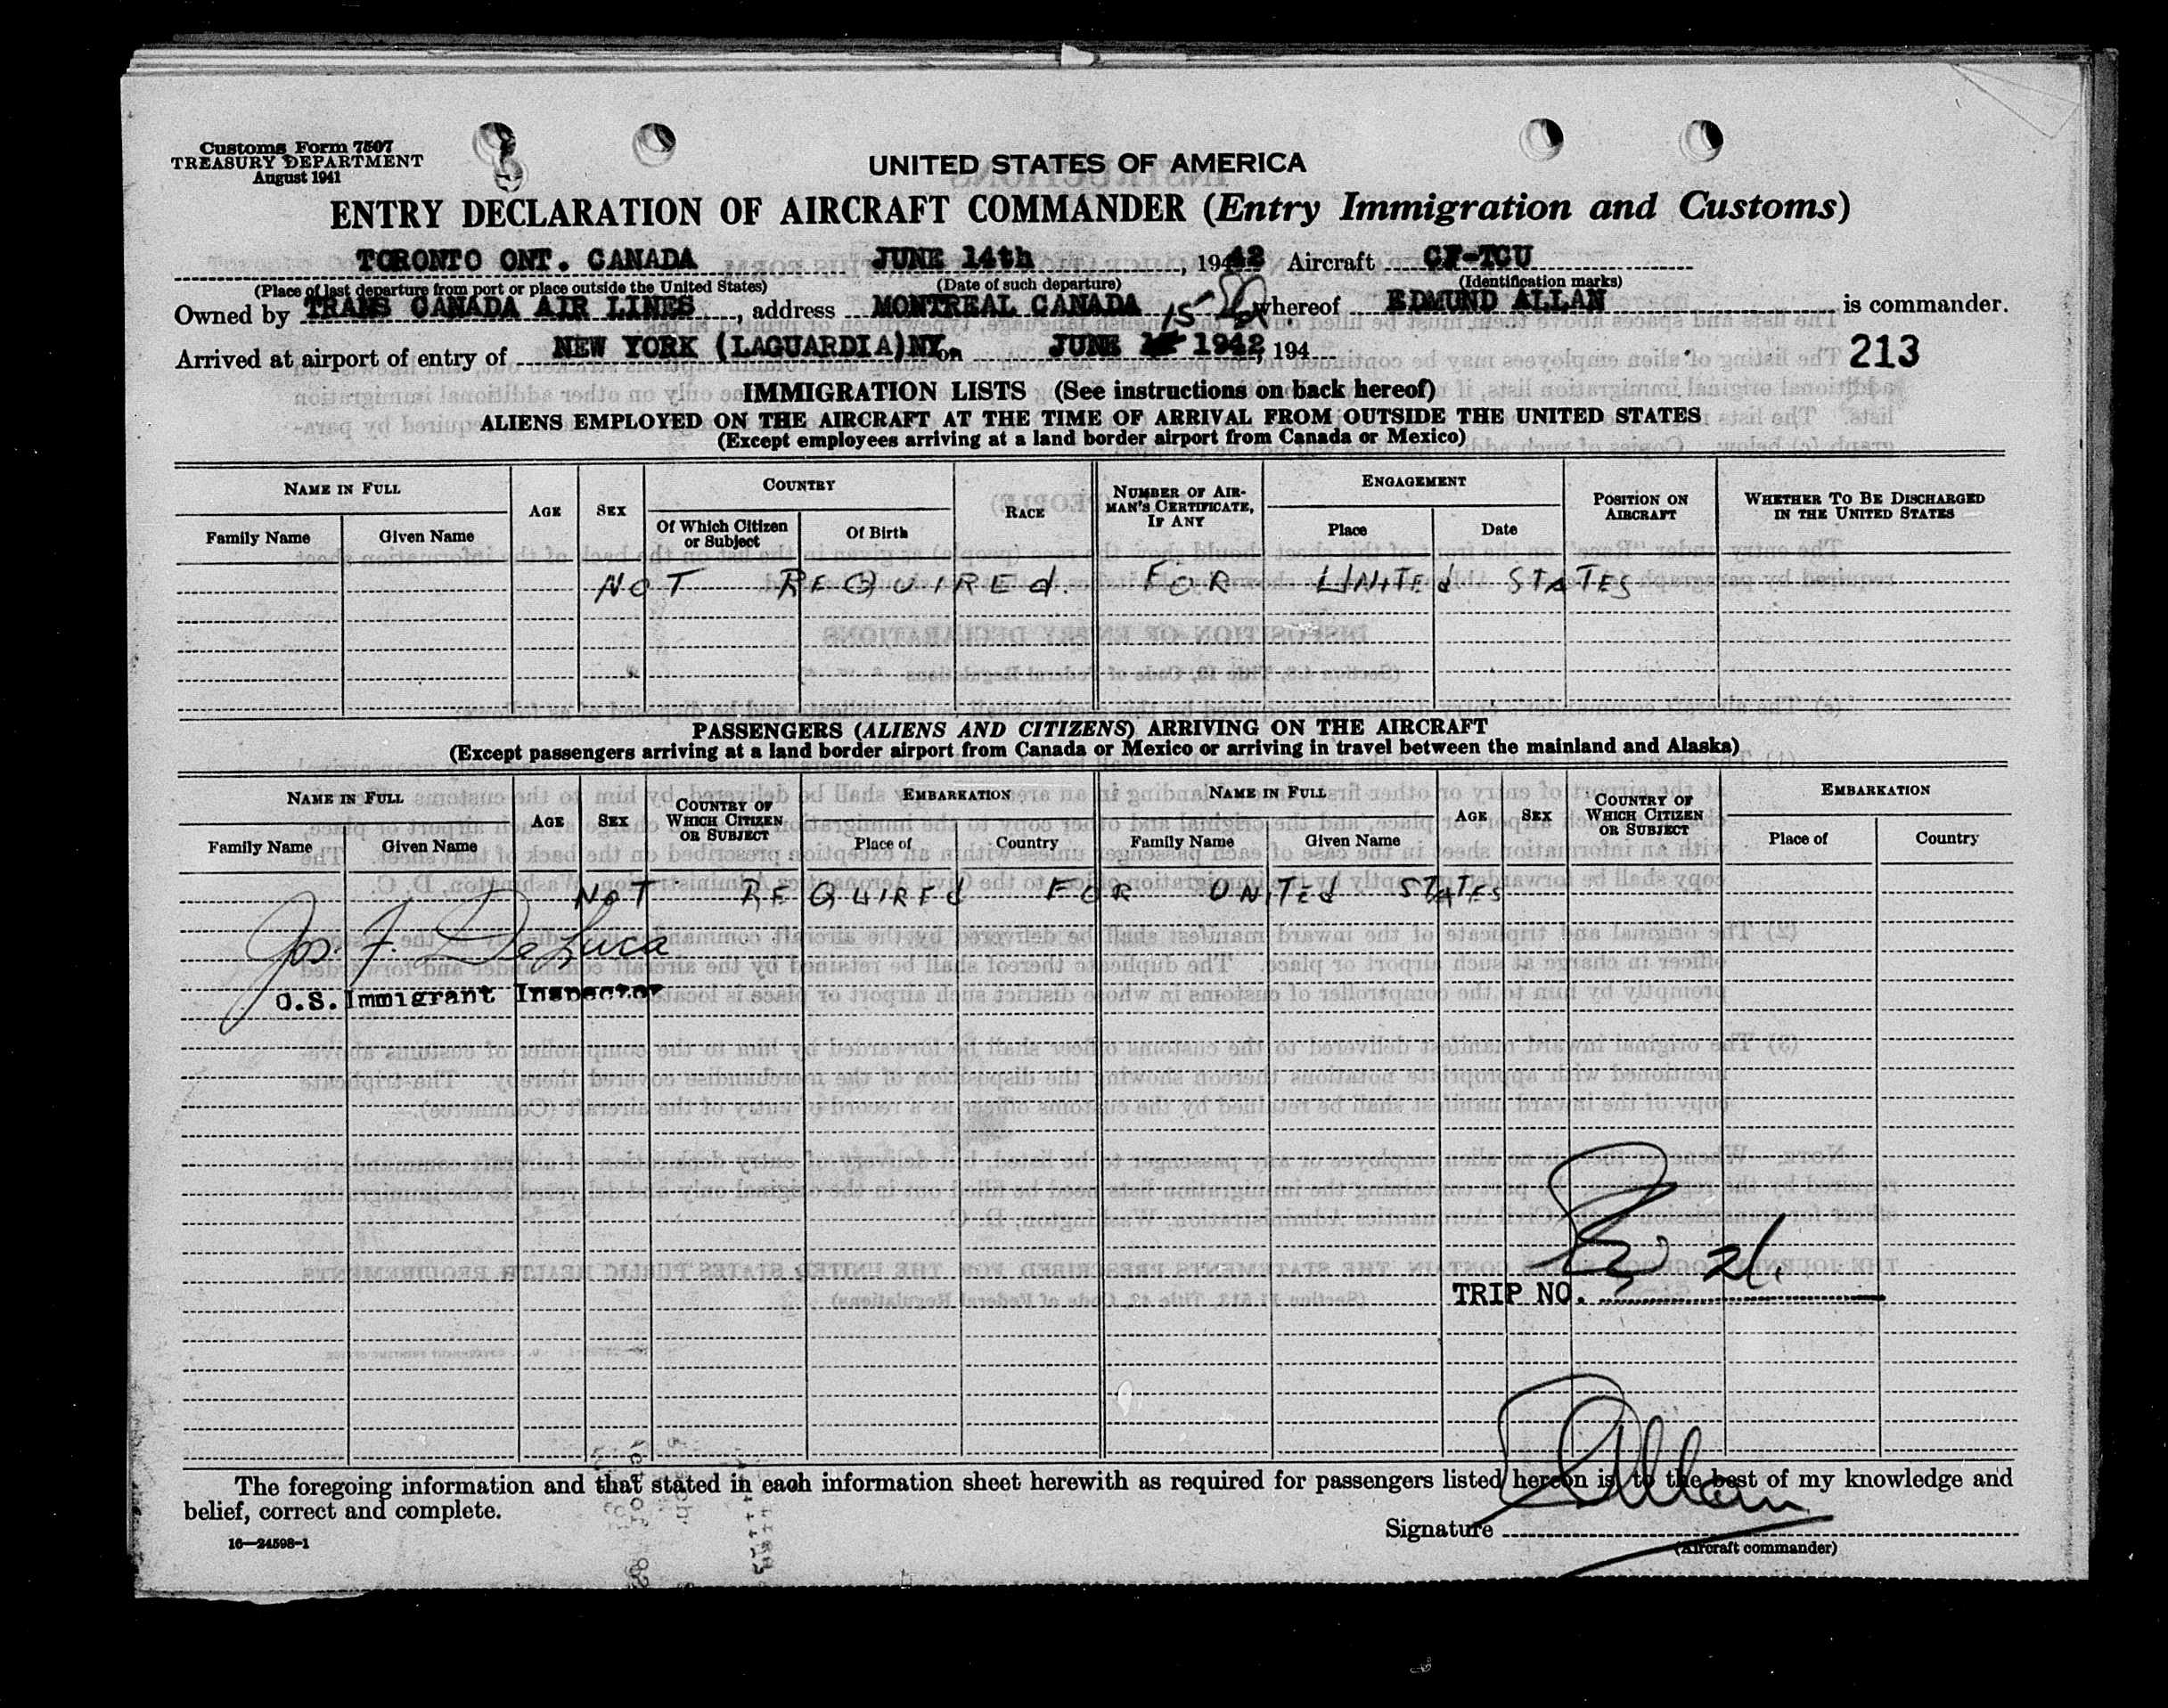 Customs Form 7507
TREASURY DEPARTMENT
August 1941
UNITED STATES OF AMERICA
ENTRY DECLARATION OF AIRCRAFT COMMANDER (Entry Immigration and Customs)
TORONTO ONT. CANADA JUNE 14th, 1942 Aircraft CF-TCU
(Place of last departure from port or place outside the United States) (Date of such departure) (Identification marks)
Owned by TRANS CANADA AIR LINES, address MONTREAL CANADA whereof EDMUND ALLAN is commander.
15
Arrived at airport of entry of NEW YORK (LAGUARDIA)NY. on JUNE 1942, 194
213
IMMIGRATION LISTS (See instructions on back hereof)
ALIENS EMPLOYED ON THE AIRCRAFT AT THE TIME OF ARRIVAL FROM OUTSIDE THE UNITED STATES
(Except employees arriving at a land border airport from Canada or Mexico)
NAME IN FULL AGE SEX COUNTRY RACE NUMBER OF AIRMAN'S CERTIFICATE, IF ANY ENGAGEMENT POSITION ON AIRCRAFT WHETHER TO BE DISCHARGED IN THE UNITED STATES
Family Name Given Name Of Which Citizen or Subject Of Birth Place Date
NOT REQUIREd. FOR UNITEd STATES
PASSENGERS (ALIENS AND CITIZENS) ARRIVING ON THE AIRCRAFT
(Except passengers arriving at a land border airport from Canada or Mexico or arriving in travel between the mainland and Alaska)
NAME IN FULL AGE SEX COUNTRY OF WHICH CITIZEN OR SUBJECT EMBARKATION NAME IN FULL AGE SEX COUNTRY OF WHICH CITIZEN OR SUBJECT EMBARKATION
Family Name Given Name Place of Country Family Name Given Name Place of Country
NOT REQUIREd FOR UNITEd STATES
Jos. F. DeLuca
U.S. Immigrant Inspector
TRIP NO. 21.
The foregoing information and that stated in each information sheet herewith as required for passengers listed hereon is, to the best of my knowledge and
belief, correct and complete.
Signature E Allan
16—24598-1
(Aircraft commander)